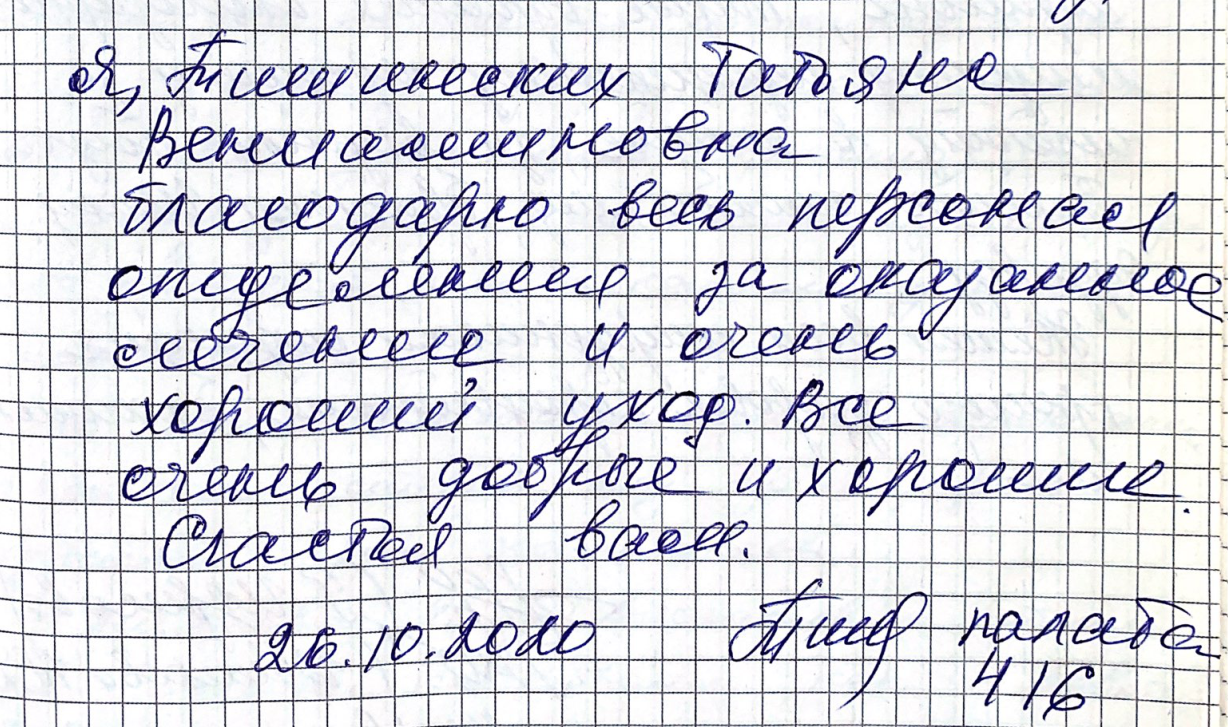 Я, Татьяна
Вениаминовна
благодарю весь персонал
отделения за оказанное
лечение и очень
хороший уход. Все
очень добрые и хорошие.
Счастья вам.
26.10.2020 палата
416